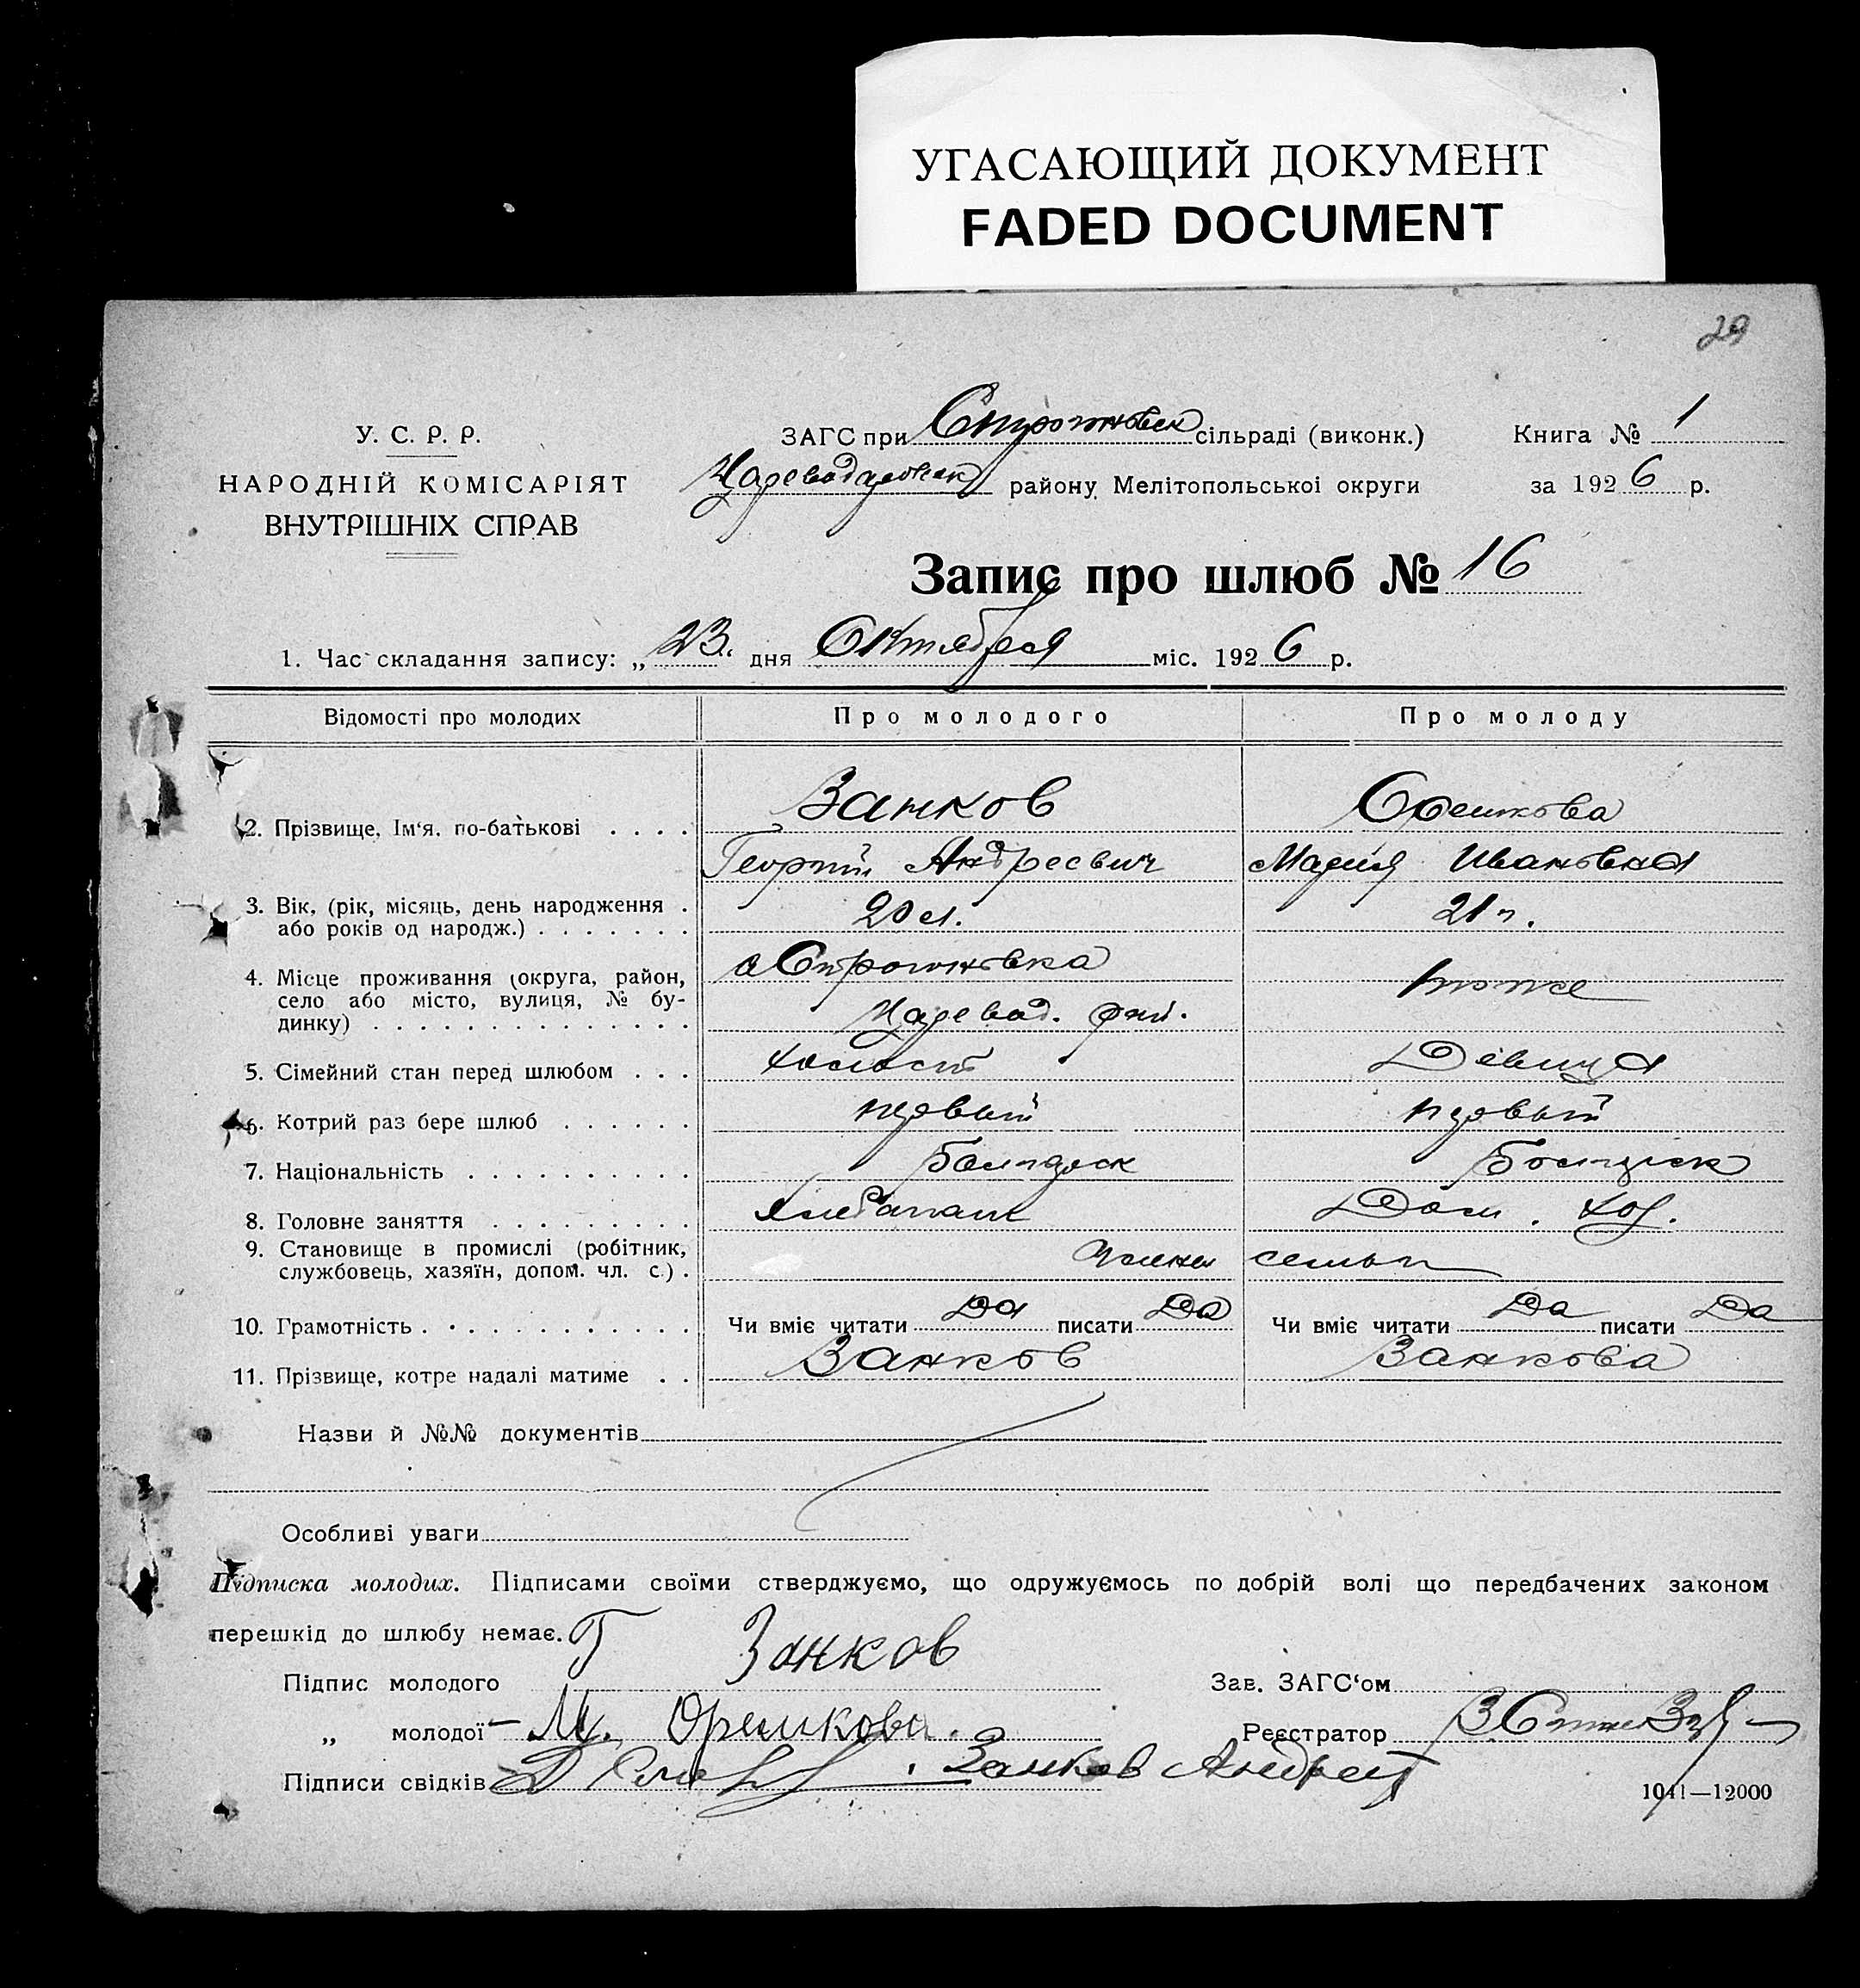 УГАСАЮЩИЙ ДОКУМЕНТ
FADED DOCUMENT
29
У. С. Р. Р.
НАРОДНІЙ КОМІСАРІЯТ
ВНУТРІШНІХ СПРАВ
ЗАГС при Строгновск сільраді (виконк.)
Книга № 1
Цареводаровск району Мелітопольської округи
за 1926 р.
Запис про шлюб № 16
1. Час складання запису: „ 23. дня Октября міс. 1926 р.
Відомості про молодих
Про молодого
Про молоду
2. Прізвище, Ім'я, по-батькові . . . .
Занков
Орешкова
Георгий Андреевич
Мария Ивановна
3. Вік, (рік, місяць, день народження .
або років од народж.) . . . . . . .
20 л.
21 г.
4. Місце проживання (округа, район,
село або місто, вулиця, № бу-
динку) . . . . . . . . . . . . . .
с Строгоновка
Царевод. рай.
тоже
5. Сімейний стан перед шлюбом . . .
холост
Девица
6. Котрий раз бере шлюб . . . . . .
первый
первый
7. Національність . . . . . . . . . .
Болгарск
Болгарск
8. Головне заняття . . . . . . . . .
Хлебопаш
Дом. хоз.
9. Становище в промислі (робітник,
службовець, хазяїн, допом. чл. с.) .
Члены семьи
10. Грамотність . . . . . . . . . . .
Чи вміє читати Да писати Да
Чи вміє читати Да писати Да
11. Прізвище, котре надалі матиме . .
Занков
Занкова
Назви й №№ документів
Особливі уваги
Підписка молодих. Підписами своїми стверджуємо, що одружуємось по добрій волі що передбачених законом
перешкід до шлюбу немає.
Підпис молодого Г Занков
Зав. ЗАГС'ом
„ молодої М. Орешкова.
Реєстратор
Підписи свідків Занков Андрей
1041—12000